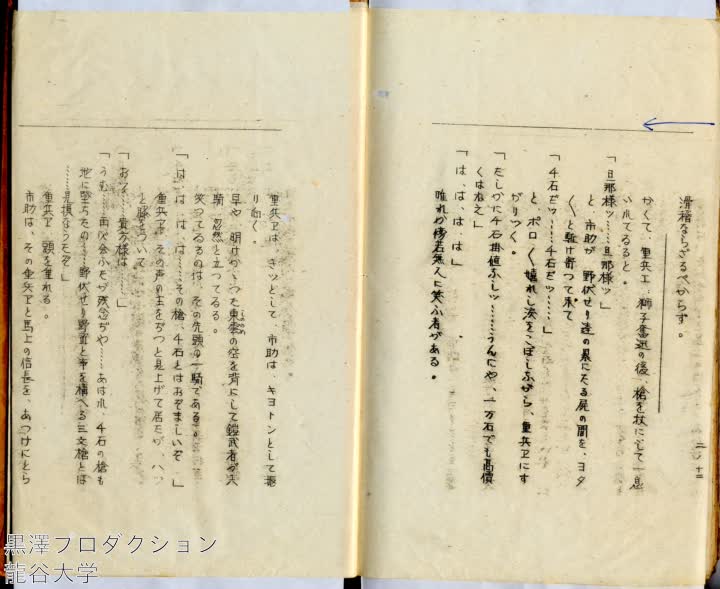 滑稽ならざるべからず。
二ノ十二
かくて、重兵エ、獅子奮迅の後、槍を杖にして一息
いれてゐると。
「旦那様ッ……旦那様ッ」
と、市助が、野伏せり達の累々たる屍の間を、ヨタ
〳〵と駈け寄つて来て
「千石だッ……千石だッ……」
と、ポロ〳〵嬉れし涙をこぼしながら、重兵ヱにす
がりつく。
「たしかに千石掛値なしッ……うんにや、一万石でも高價
くはねえ」
「は、は、は、は」
誰れか傍若無人に笑ふ者がある。
重兵ヱは、きッとして、市助は、キヨトンとして振
り向く。
早や、明けかゝつた東雲の空を背にして鎧武者が六
騎、忽然と立つてゐる。
笑つてゐるのは、その先頭の一騎である。
「は、は、は、は……その槍、千石とはおぞましいぞ」
重兵ヱは、その声の主をぢつと見上げて居たが、ハッ
と膝をついて
「おゝ……貴方様は……」
「うむ……再び会ふたが残念ぢや……あはれ、千石の槍も
地に墜ちたの……野伏せり野盗と事を構へる三文槍とは
……見損なつたぞ」
重兵ヱ、頭を垂れる。
市助は、その重兵ヱと馬上の信長を、あつけにとら
黒澤プロダクション
龍谷大学